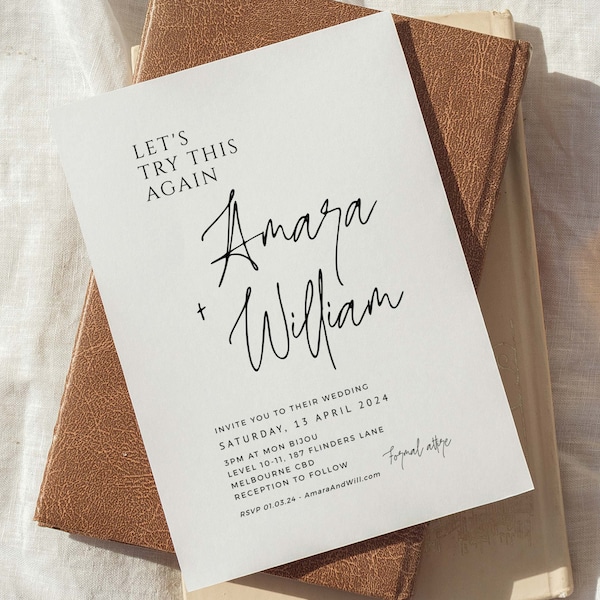 LET'S
TRY THIS
AGAIN
Amara
+ William
INVITE YOU TO THEIR WEDDING
SATURDAY, 13 APRIL 2024
3PM AT MON BIJOU
LEVEL 10-11, 187 FLINDERS LANE
MELBOURNE CBD
RECEPTION TO FOLLOW
formal attire
RSVP 01.03.24 - AmaraAndWill.com